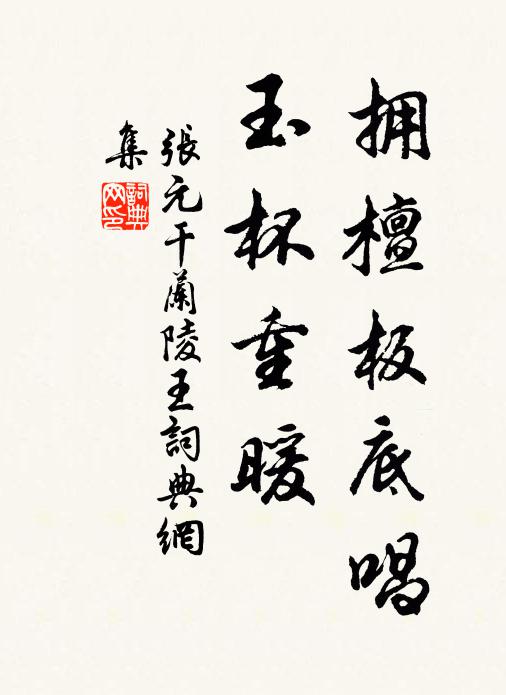 拥檀板底唱
玉杯重暖
張元干蘭陵王詞典網
集
詞典
网印